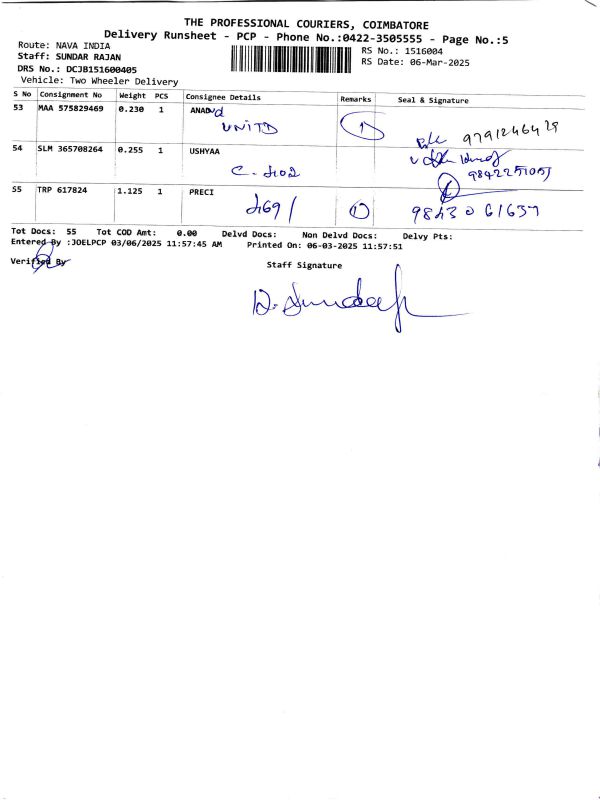 THE PROFESSIONAL COURIERS, COIMBATORE
Delivery Runsheet - PCP - Phone No.:0422-3505555 - Page No.:5
Route: NAVA INDIA
RS No.: 1516004
Staff: SUNDAR RAJAN
RS Date: 06-Mar-2025
DRS No.: DCJB151600405
Vehicle: Two Wheeler Delivery
S No Consignment No Weight PCS Consignee Details Remarks Seal & Signature
53 MAA 575829469 0.230 1 ANAND
UNITD 1 9791246429
54 SLM 365708264 0.255 1 USHYAA
C-402 9842251051
55 TRP 617824 1.125 1 PRECI
469/ 1 98430 61637
Tot Docs: 55 Tot COD Amt: 0.00 Delvd Docs: Non Delvd Docs: Delvy Pts:
Entered By :JOELPCP 03/06/2025 11:57:45 AM Printed On: 06-03-2025 11:57:51
Verified By
Staff Signature